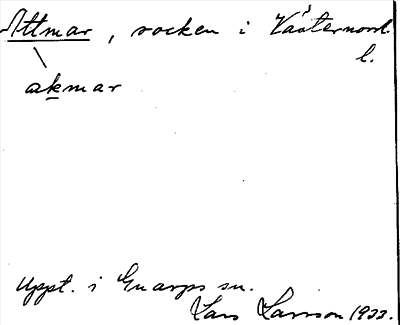 Attmar, socken i Västernorrl.
l.
akmar
Uppt. i Gnarps sn.
Lars Larsson 1933.